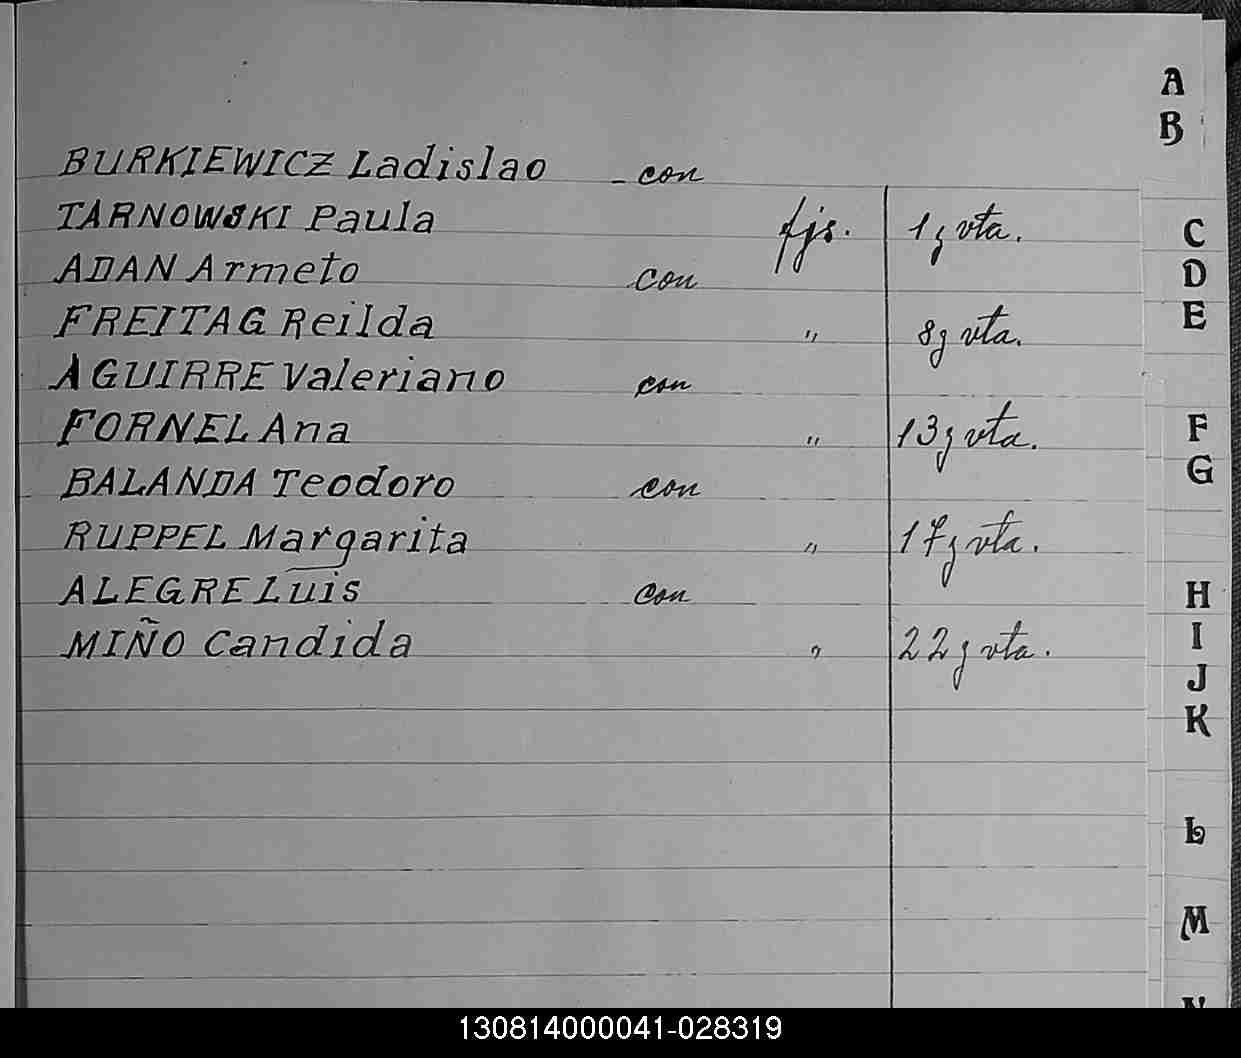 A
B
BURKIEWICZ Ladislao - con
TARNOWSKI Paula fjs. 1 y vta.
C
ADAN Armeto con
D
FREITAG Reilda " 8 y vta.
E
AGUIRRE Valeriano con
FORNEL Ana " 13 y vta.
F
G
BALANDA Teodoro con
RUPPEL Margarita " 17 y vta.
ALEGRE Luis con
H
MIÑO Candida " 22 y vta.
I
J
K
L
M
N
130814000041-028319